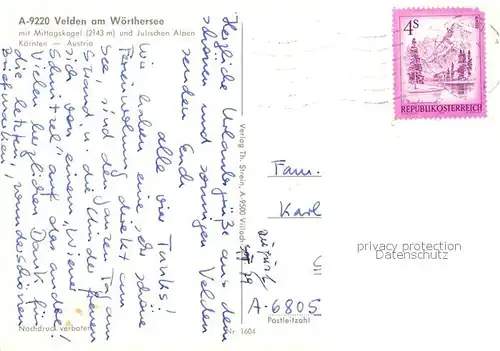 A-9220 Velden am Wörthersee
mit Mittagskogel (2143 m) und Julischen Alpen
Kärnten — Austria
Herzliche Urlaubsgrüße aus dem
schönen und sonnigen Velden
senden Euch
alle vier Tunks!
Wir haben eine sehr schöne
Ferienwohnung direkt am
See, sind den ganzen Tag am
Strand u. die Kinder freuen
sich von einem „Wiener
Schnitzel" auf das andere!
Vielen herzlichen Dank für
die letzten, wunderschönen
Briefmarken!
Nochdruck verboten
Verlag Th. Strein, A-9500 Villach
Nr. 1604
4S
REPUBLIK ÖSTERREICH
Fam.
Karl
A-6805
Postleitzahl
privacy protection
Datenschutz